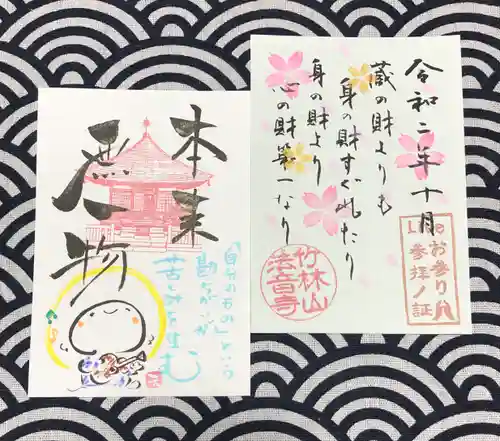 令和二年十月
蔵の財よりも
身の財すぐれたり
身の財より
心の財第一なり
Liveお参り
参拝ノ証
竹林山
法音寺
本来
無一物
「自分のもの」という
勘ちがいが
苦しみを生む